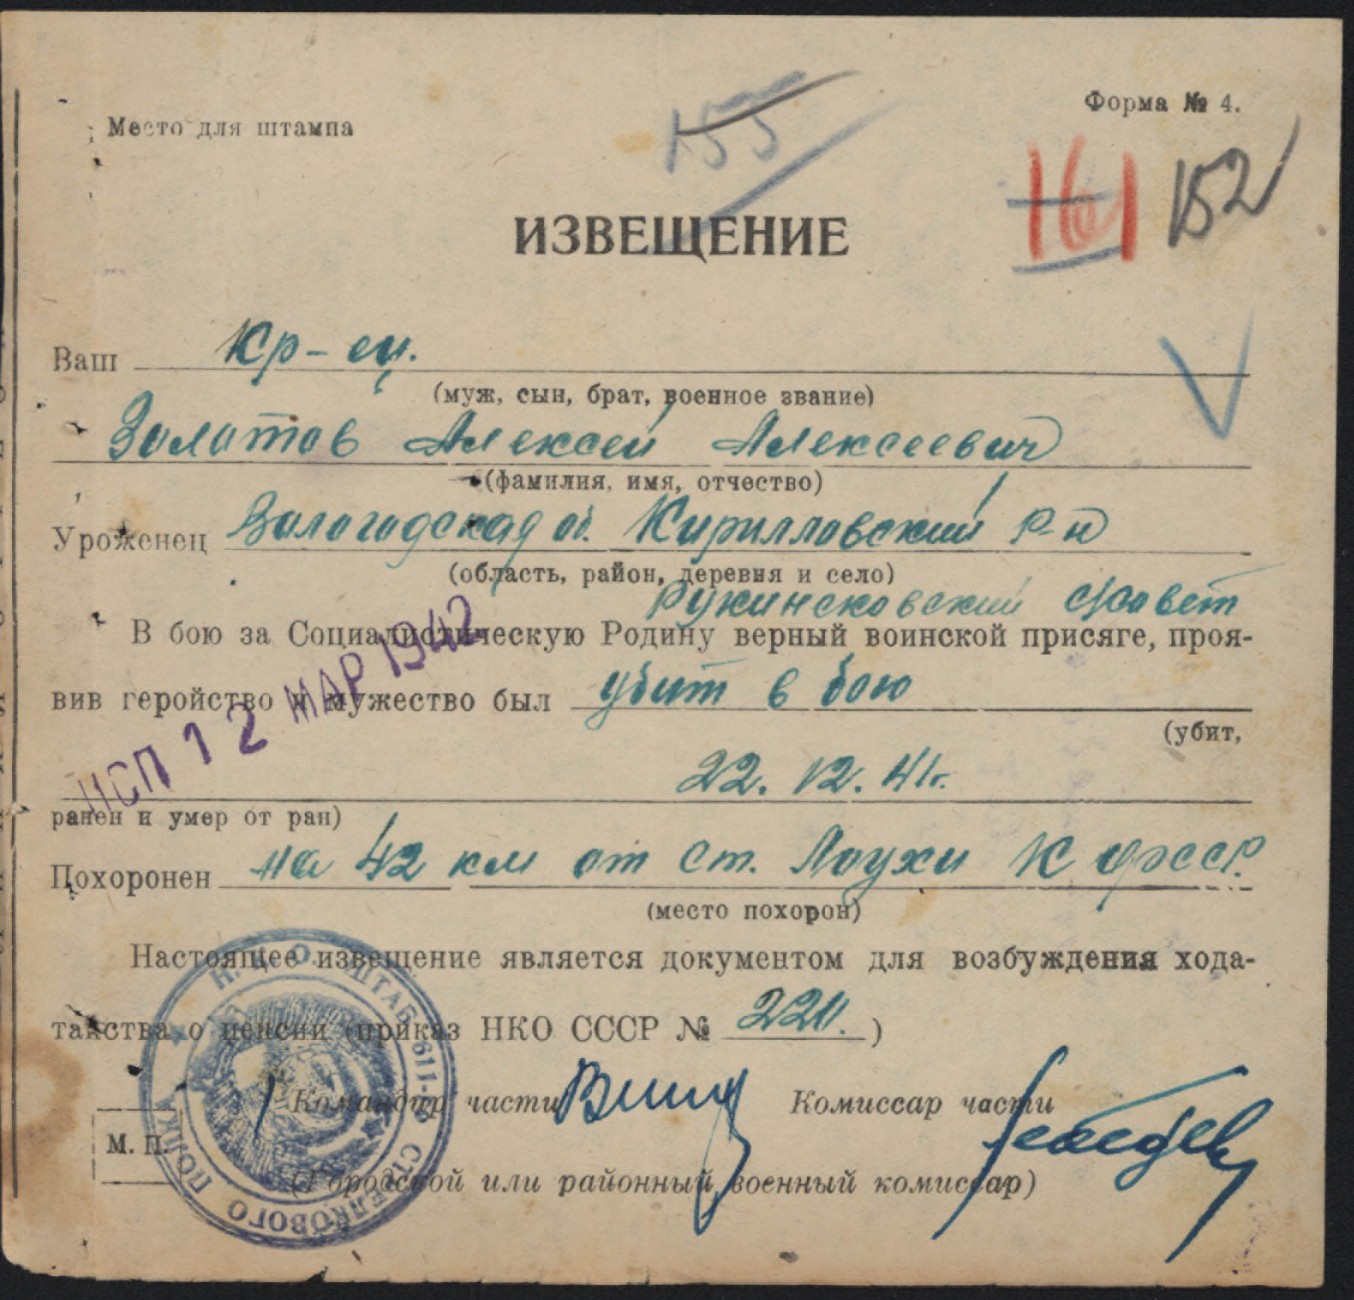 Форма № 4.
Место для штампа
155
161 152
ИЗВЕЩЕНИЕ
Ваш Кр-ец.
(муж, сын, брат, военное звание)
Золотов Алексей Алексеевич
(фамилия, имя, отчество)
Уроженец Вологодская об. Кирилловский р-н
(область, район, деревня и село)
с/совет
В бою за Социалистическую Родину верный воинской присяге, проя-
вив геройство и мужество был убит в бою
(убит,
12 МАР 1942
22.12.41г.
ранен и умер от ран)
Похоронен на 42 км от ст. Лоухи К фССР.
(место похорон)
Настоящее извещение является документом для возбуждения хода-
тайства о пенсии (приказ НКО СССР № 220.)
Командир части Комиссар части
М. П.
(Городской или районный военный комиссар)
ШТАБ 611-й СТРЕЛКОВОГО ПОЛКА